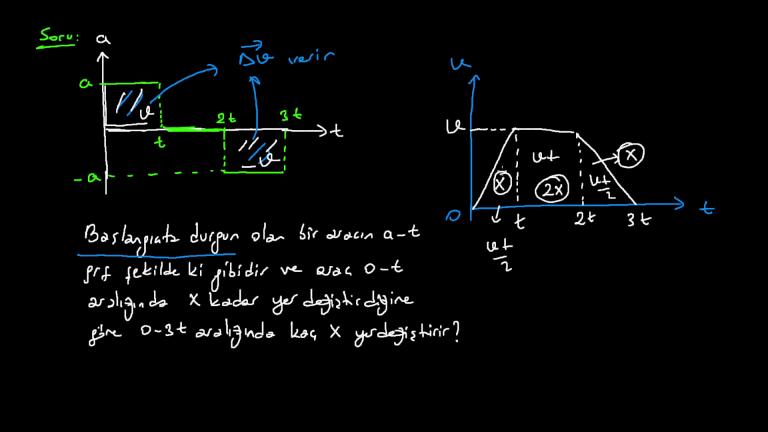 Soru: a
Δv verir
a
v
t 2t 3t t
v
-a
v
v
x vt 2x vt/2 x
0 t 2t 3t t
vt/2
Başlangıçta durgun olan bir aracın a-t
grf şekilde ki gibidir ve araç 0-t
aralığında x kadar yer değiştirdiğine
göre 0-3t aralığında kaç x yerdeğiştirir?